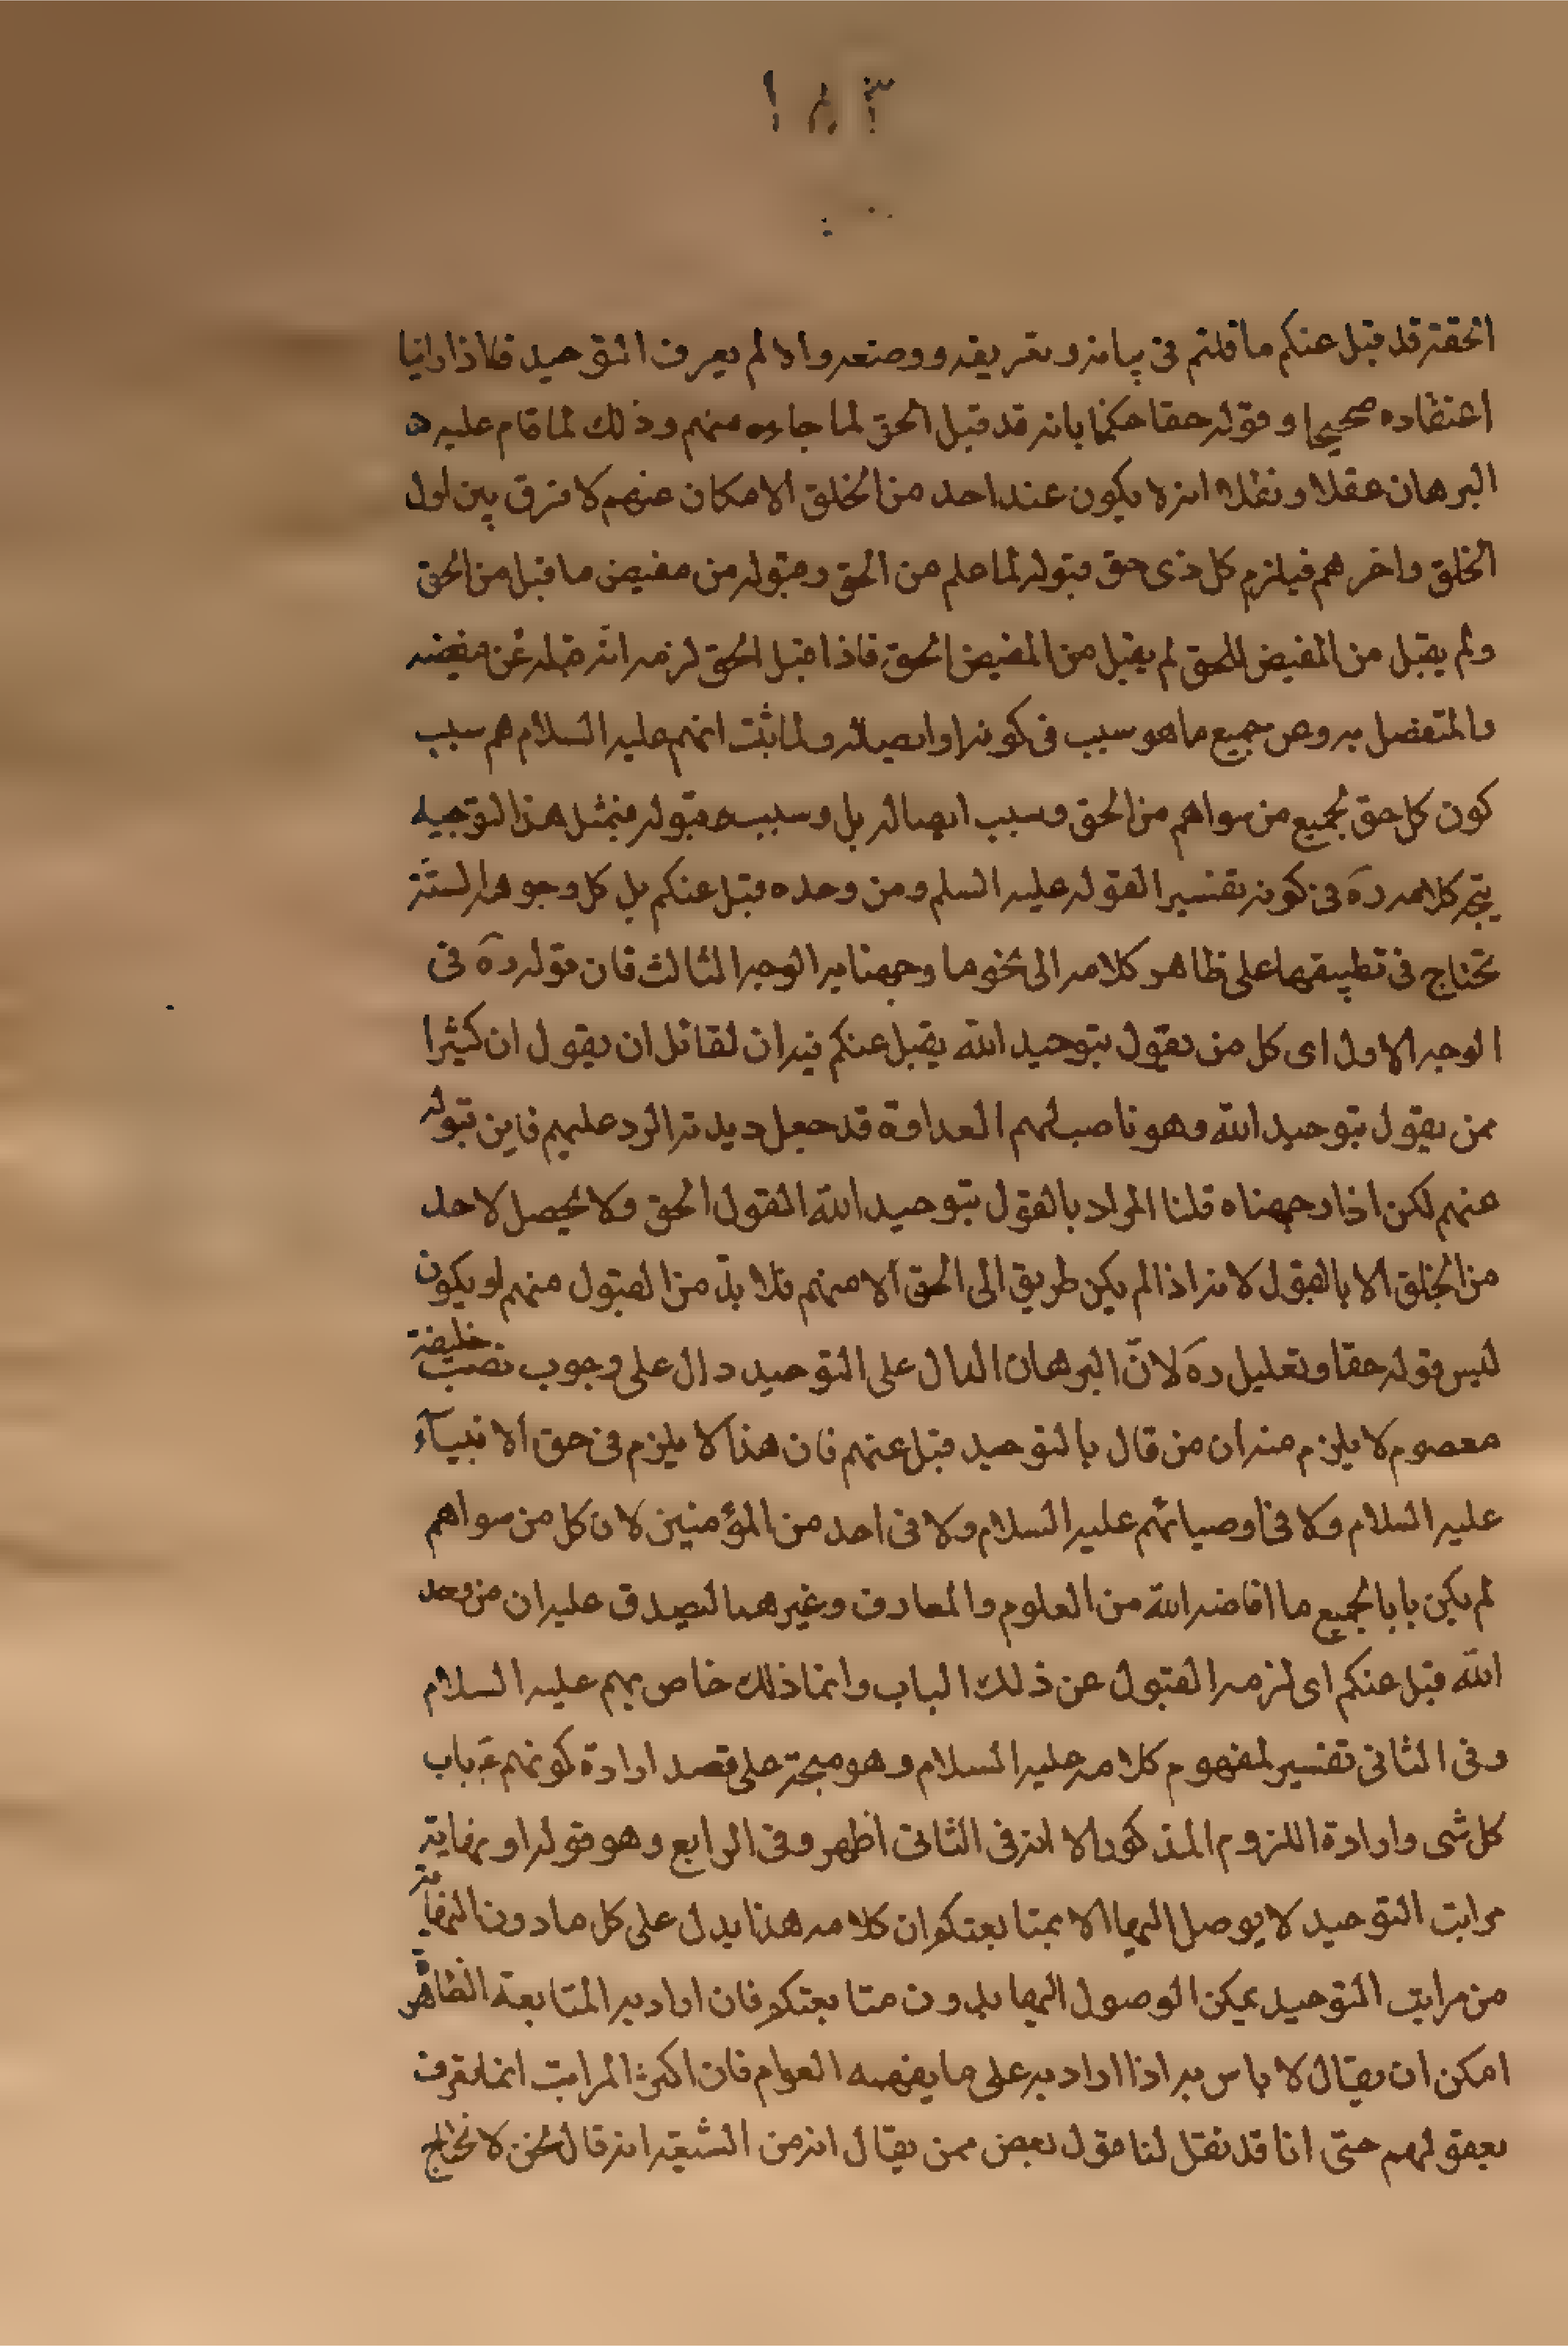 ١٨٣
الحقة قد قبل عنكم ما قلتم فى بيانه وتعريفه ووصفه والا لم يعرف التوحيد فاذا راينا
اعتقاده صحيحا وقوله حقا حكمنا بانه قد قبل الحق لما جاءه منهم وذلك لما قام عليه
البرهان عقلا ونقلا انه لا يكون عند احد من الخلق الا مكان عنهم لا فرق بين اول
الخلق واخرهم فيلزم كل ذى حق قبوله لما علم من الحق وقبوله من مفيض ما قبل من الحق
ولم يقبل من المفيض للحق لم يقبل من المفيض الحق فاذا قبل الحق لزمه انه قبله عن مفيضه
والمتفضل به وعن جميع ما هو سبب فى كونه او ايصاله ولما ثبت انهم عليه السلام هم سبب
كون كل حق لجميع من سواهم من الحق وسبب ايصاله بل وسبب قبوله فبمثل هذا التوجيه
يتجه كلامه ره فى كونه تفسيرا لقوله عليه السلم ومن وحده قبل عنكم بل كل وجوهه الستة
تحتاج فى تطبيقها على ظاهر كلامه الى نحو ما وجهنا به الوجه الثالث فان قوله ره فى
الوجه الاول اى كل من يقول بتوحيد الله يقبل عنكم فيه ان لقائل ان يقول ان كثيرا
ممن يقول بتوحيد الله وهو ناصب لهم العداوة قد جعل ديدنه الرد عليهم فاين قبوله
عنهم لكن اذا وجهناه قلنا المراد بالقول بتوحيد الله القول الحق ولا يحصل لاحد
من الخلق الا بالقبول لانه اذا لم يكن طريق الى الحق الا منهم فلا بد من القبول منهم او يكون
ليس قوله حقا وتعليل ره لان البرهان الدال على التوحيد دال على وجوب نصب خليفة
معصوم لا يلزم منه ان من قال بالتوحيد قبل عنهم فان هذا لا يلزم فى حق الانبيآء
عليه السلام ولا فى اوصيائهم عليه السلام ولا فى احد من المؤمنين لان كل من سواهم
لم يكن بابا لجميع ما افاضه الله من العلوم والمعارف وغيرهما ليصدق عليه ان من وحد
الله قبل عنكم اى لزمه القبول عن ذلك الباب وانما ذلك خاص بهم عليه السلام
وفى الثانى تفسير لمفهوم كلامه عليه السلام وهو متجه على قصد ارادة كونهم ع باب
كل شى وارادة اللزوم المذكور الا انه فى الثانى اظهر وفى الرابع وهو قوله او نهاية
مراتب التوحيد لا يوصل اليها الا بمتابعتكم ان كلامه هذا يدل على كل ما دون النهاية
من مراتب التوحيد يمكن الوصول اليها بدون متابعتكم فان اراد به المتابعة الظاهرة
امكن ان يقال لا باس به اذا اراد به على ما يفهمه العوام فان اكثر المراتب انما تعرف
بعقولهم حتى انا قد نقل لنا قول بعض ممن يقال انه من الشيعة انه قال نحن لا نحتاج